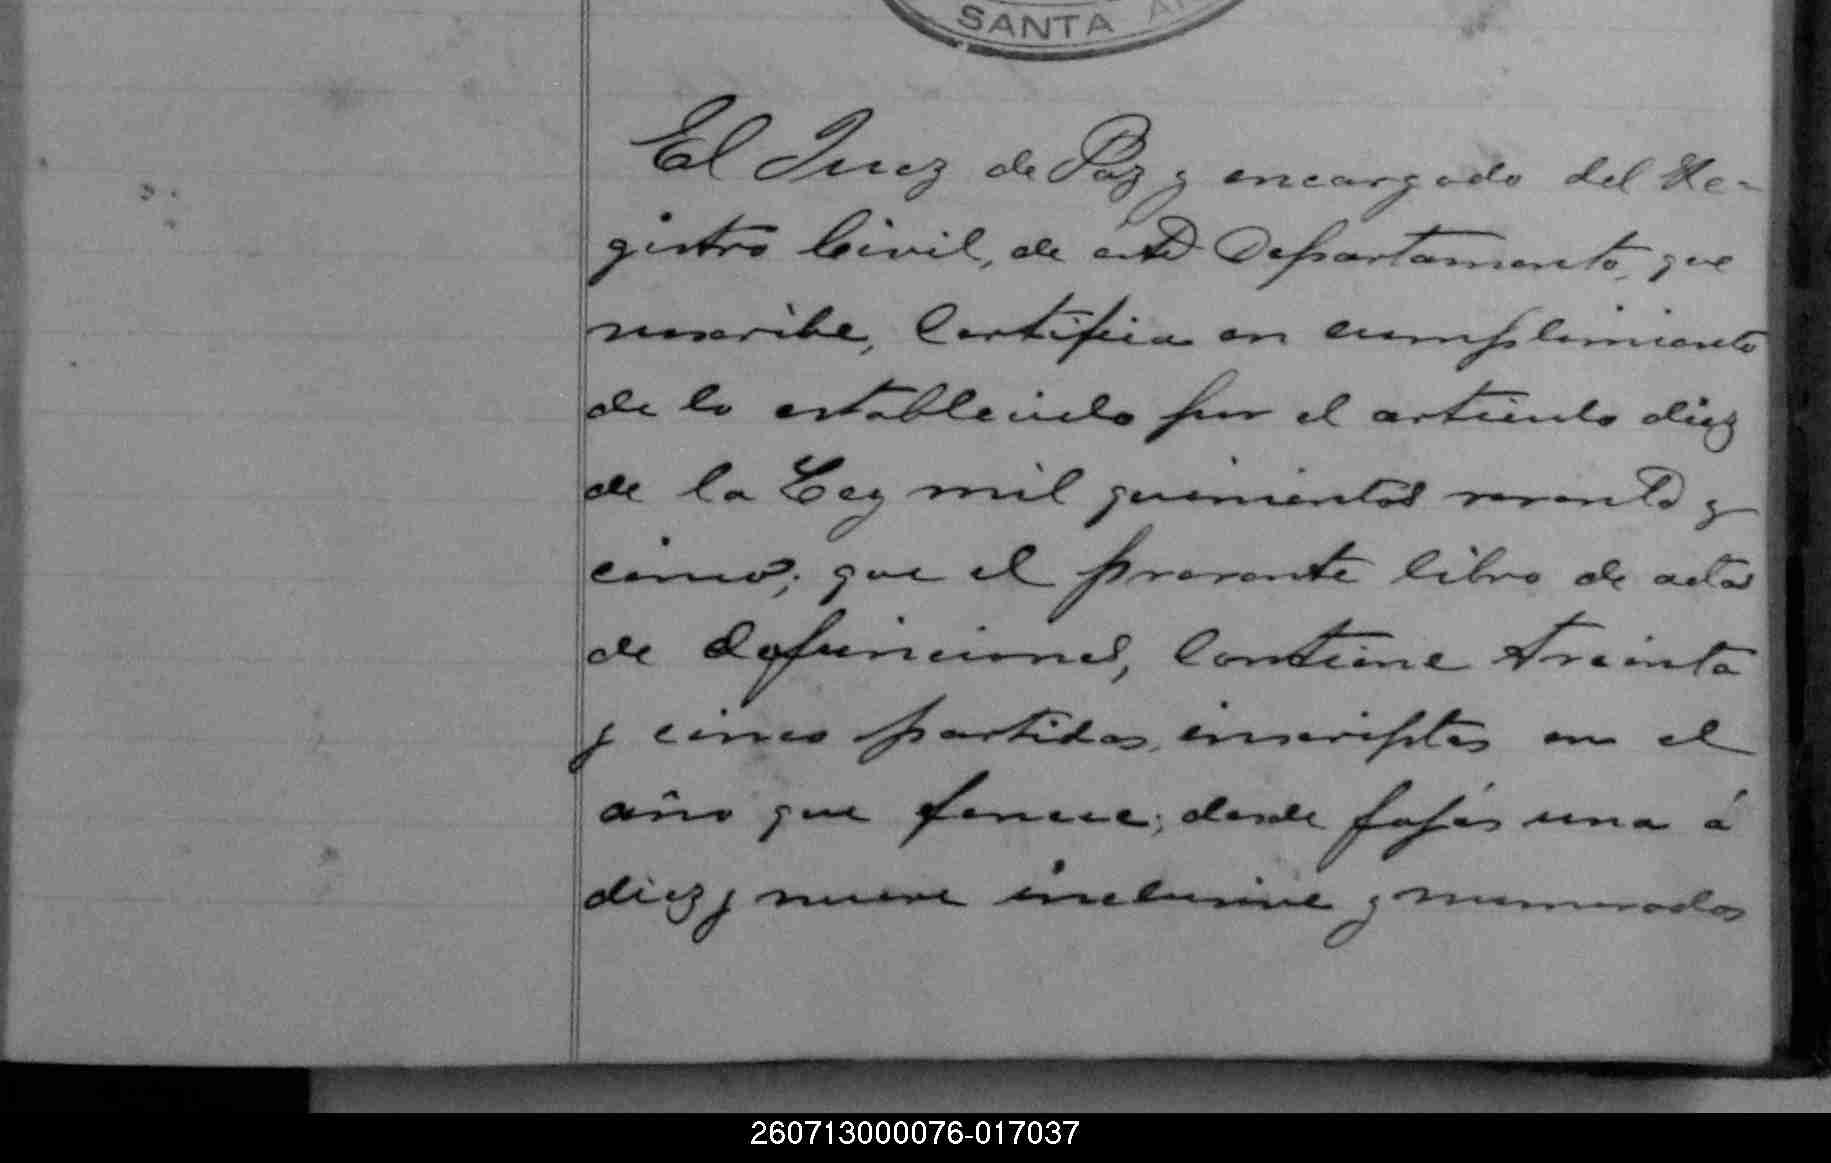 SANTA
El Juez de Paz y encargado del Re-
gistro Civil, de éste Departamento, que
suscribe, Certifica en cumplimiento
de lo establecido por el artículo diez
de la Ley mil quinientos sesenta y
cinco; que el presente libro de actas
de defunciones, contiene treinta
y cinco partidas, inscriptas en el
año que fenece; desde fojas una á
diez y nueve inclusive y numerados
260713000076-017037